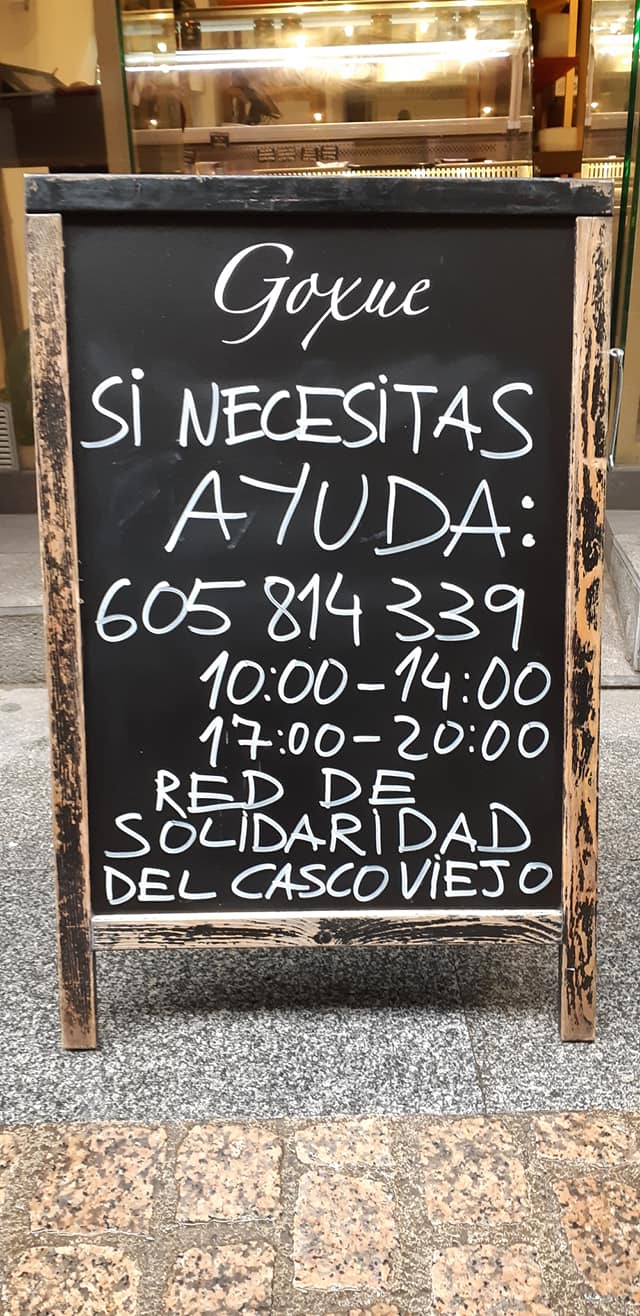 Goxue
Si NECESiTAS
AYUDA:
605 814 339
10:00-14:00
17:00-20:00
RED DE
SOLIDARIDAD
DEL CASCO ViEJO